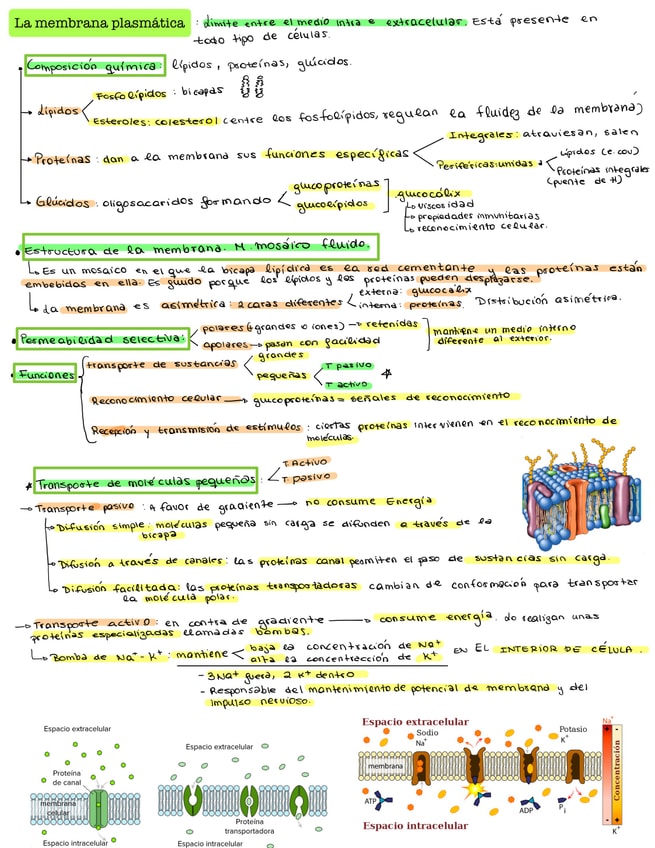 La membrana plasmática : límite entre el medio intra e extracelular. Está presente en
todo tipo de células.
Composición química: lípidos, proteínas, glúcidos.
Lípidos
Fosfolípidos: bicapas
Esteroles: colesterol (entre los fosfolípidos, regulan la fluidez de la membrana)
Proteínas: dan a la membrana sus funciones específicas
Integrales: atraviesan, salen
Periféricas: unidas a
Lípidos (e. cov)
Proteínas integrales
(puente de H)
Glúcidos: oligosacáridos formando
glucoproteínas
glucolípidos
glucocálix
viscosidad
propiedades inmunitarias
reconocimiento celular.
Estructura de la membrana. M. mosaico fluido.
Es un mosaico en el que la bicapa lipídica es la red cementante y las proteínas están
embebidas en ella. Es fluido porque los lípidos y las proteínas pueden desplazarse.
La membrana es asimétrica: 2 caras diferentes
externa: glucocálix
interna: proteínas.
Distribución asimétrica.
Permeabilidad selectiva:
polares (+grandes o iones) → retenidas
apolares → pasan con facilidad
mantiene un medio interno
diferente al exterior.
Funciones
transporte de sustancias
grandes
pequeñas
T pasivo
T activo
Reconocimiento celular → glucoproteínas = señales de reconocimiento
Recepción y transmisión de estímulos: ciertas proteínas intervienen en el reconocimiento de
moléculas.
* Transporte de moléculas pequeñas:
T Activo
T pasivo
→ Transporte pasivo: A favor de gradiente → no consume Energía
Difusión simple: moléculas pequeña sin carga se difunden a través de la
bicapa
Difusión a través de canales: las proteínas canal permiten el paso de sustancias sin carga.
Difusión facilitada: las proteínas transportadoras cambian de conformación para transporter
la molécula polar.
→ Transporte activo: en contra de gradiente → consume energía. lo realizan unas
proteínas especializadas llamadas bombas.
Bomba de Na⁺-K⁺: mantiene
baja la concentración de Na⁺
alta la concentracción de K⁺
EN EL INTERIOR DE CÉLULA.
- 3Na⁺ fuera, 2 K⁺ dentro
- Responsable del mantenimiento de potencial de membrana y del
impulso nervioso.
Espacio extracelular
Proteína
de canal
membrana
celular
Espacio intracelular
Espacio extracelular
Proteína
transportadora
Espacio intracelular
Espacio extracelular
Sodio
Na⁺
Potasio
K⁺
membrana
ATP
ADP
P i
Espacio intracelular
Na⁺
+ -
Concentración
- +
K⁺